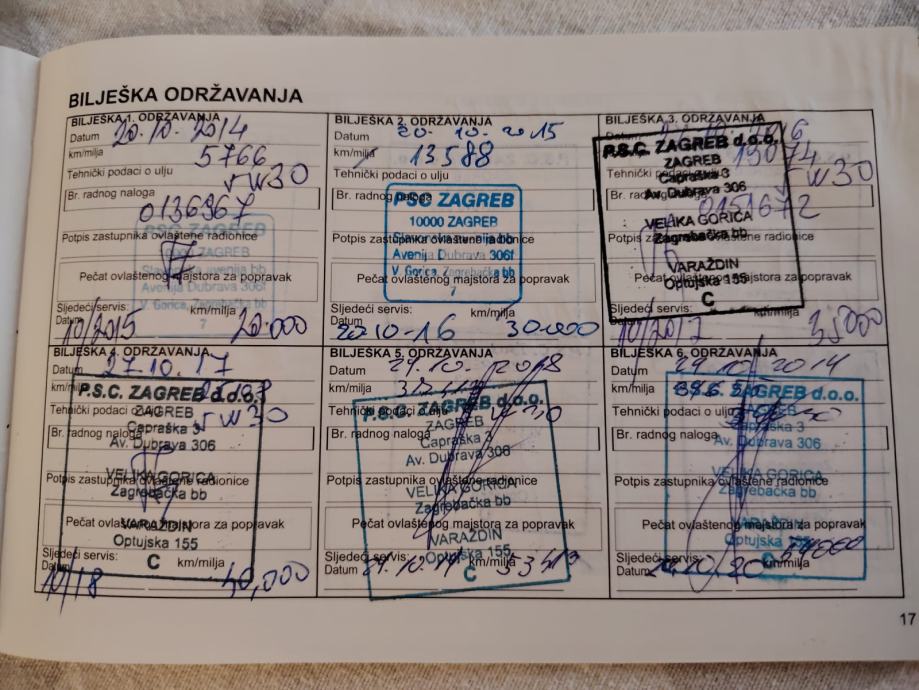 BILJEŠKA ODRŽAVANJA
BILJEŠKA 1. ODRŽAVANJA
Datum 20.10.2014
km/milja 5766
Tehnički podaci o ulju 5W30
Br. radnog naloga
0136967
Potpis zastupnika ovlaštene radionice
ZAGREB
Avenija Dubrava 306f
V. Gorica, Zagrebačka bb
7
Pečat ovlaštenog majstora za popravak
Sljedeći servis: km/milja
Datum 10/2015 20.000
BILJEŠKA 2. ODRŽAVANJA
Datum 20.10.2015
km/milja 13588
Tehnički podaci o ulju
Br. radnog naloga
PSC ZAGREB
10000 ZAGREB
Potpis zastupnika ovlaštene radionice
Avenija Dubrava 306f
V. Gorica, Zagrebačka bb
7
Pečat ovlaštenog majstora za popravak
Sljedeći servis: km/milja
Datum 20.10-16 30.000
BILJEŠKA 3. ODRŽAVANJA
Datum
km/milja 19074
Tehnički podaci o ulju 5W30
Br. radnog naloga
0151672
P.S.C. ZAGREB d.o.o.
ZAGREB
Capraška 3
Av. Dubrava 306
VELIKA GORICA
Zagrebačka bb
Potpis zastupnika ovlaštene radionice
VARAŽDIN
Optujska 155
C
Pečat ovlaštenog majstora za popravak
Sljedeći servis: km/milja
Datum 10/2017
BILJEŠKA 4. ODRŽAVANJA
Datum 27.10.17
km/milja
P.S.C. ZAGREB d.o.o.
Tehnički podaci o ulju 5W30
ZAGREB
Capraška 3
Br. radnog naloga
Av. Dubrava 306
VELIKA GORICA
Potpis zastupnika ovlaštene radionice
Zagrebačka bb
Pečat ovlaštenog majstora za popravak
VARAŽDIN
Optujska 155
C
Sljedeći servis: km/milja
Datum 10/18 40,000
BILJEŠKA 5. ODRŽAVANJA
Datum 29.10.2018
km/milja
P.S.C. ZAGREB d.o.o.
Tehnički podaci o ulju
ZAGREB
Capraška 3
Br. radnog naloga
Av. Dubrava 306
Potpis zastupnika ovlaštene radionice
VELIKA GORICA
Zagrebačka bb
Pečat ovlaštenog majstora za popravak
VARAŽDIN
Optujska 155
C
Sljedeći servis: km/milja
Datum
BILJEŠKA 6. ODRŽAVANJA
Datum
km/milja
P.S.C. ZAGREB d.o.o.
Tehnički podaci o ulju
ZAGREB
Capraška 3
Br. radnog naloga
Av. Dubrava 306
VELIKA GORICA
Potpis zastupnika ovlaštene radionice
Zagrebačka bb
Pečat ovlaštenog majstora za popravak
VARAŽDIN
Optujska 155
C
Sljedeći servis: km/milja
Datum
17